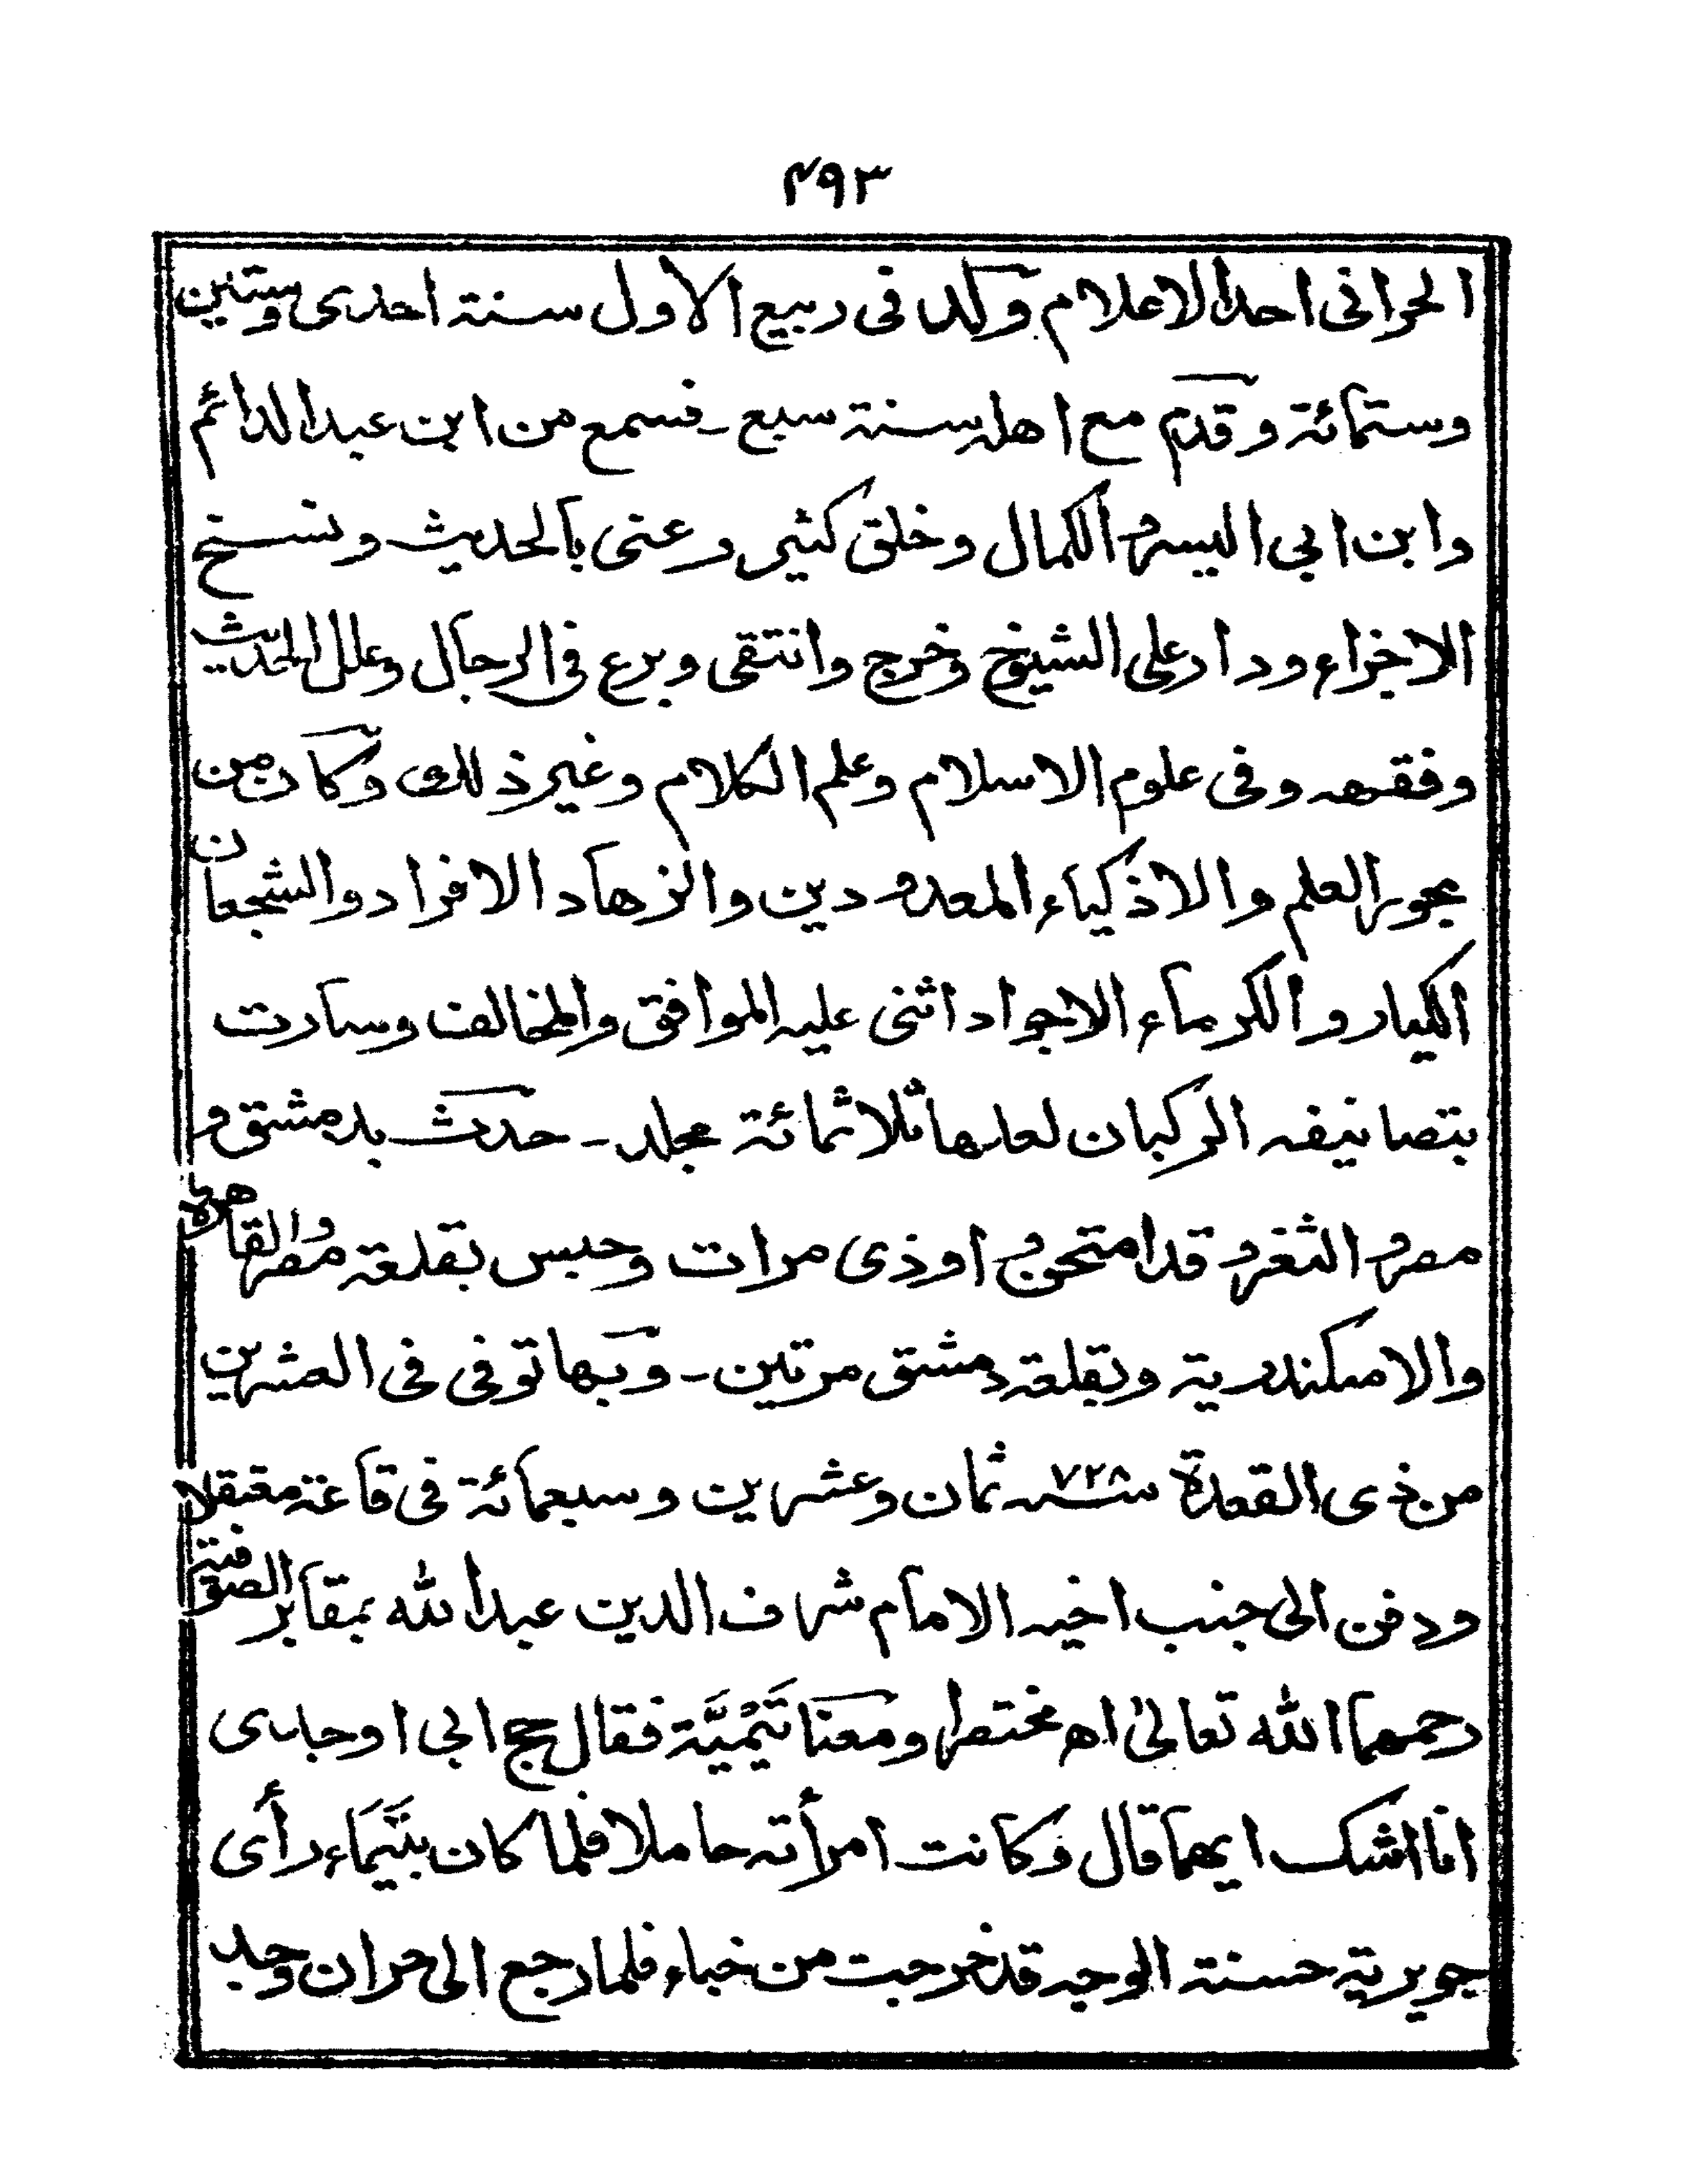 ۴۹۳
الحرانى احد الاعلام ولد فى ربيع الاول سنة احدى وستين
وستمائة وقدم مع اهله سنة سبع ـ فسمع من ابن عبد الدائم
وابن ابى اليسر والكمال وخلق كثير وعنى بالحديث ونسخ
الاجزاء ودار على الشيوخ وخرج وانتقى وبرع فى الرجال وعلل الحديث
وفقهه وفى علوم الاسلام وعلم الكلام وغير ذلك وكان من
بحور العلم والاذكياء المعدودين والزهاد الافراد والشجعان
الكبار والكرماء الاجواد اثنى عليه الموافق والمخالف وسارت
بتصانيفه الركبان لعلها ثلاثمائة مجلد ـ حدث بدمشق و
مصر والثغر وقد امتحن واوذى مرات وحبس بقلعة مصر والقاهرة
والاسكندرية وبقلعة دمشق مرتين ـ وبها توفى فى العشرين
من ذى القعدة سنه ٧٢٨ ثمان وعشرين وسبعمائة فى قاعة معتقلا
ودفن الى جنب اخيه الامام شرف الدين عبد الله بمقابر الصوفية
رحمهما الله تعالىٰ اه مختصرا ومعنا تَيْمِيَّة فقال حج ابى او جدى
انا اشك ايهما قال وكانت امرأته حاملا فلما كان بتَيْمَاء رأى
جويرية حسنة الوجه قد خرجت من خباء فلما رجع الى حران وجد